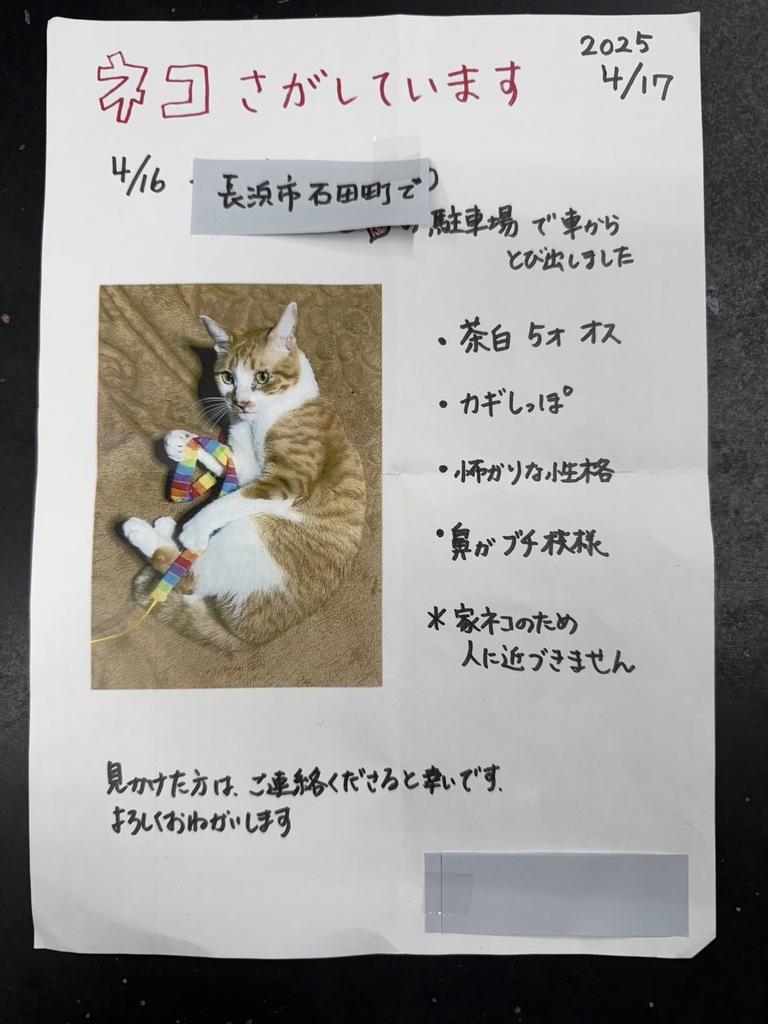 2025
4/17
ネコ さがしています
4/16
長浜市石田町で
駐車場 で車から
とび出しました
・茶白 5才 オス
・カギしっぽ
・怖がりな性格
・鼻がブチ模様
＊家ネコのため
人に近づきません
見かけた方は、ご連絡くださると幸いです、
よろしくおねがいします